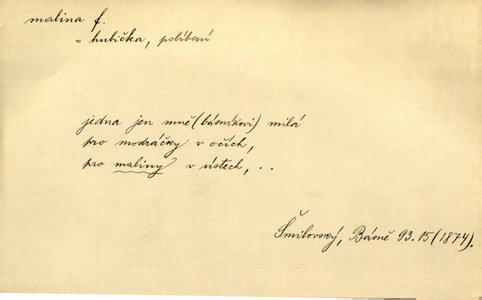 malina f.
= hubička, políbení
jedna jen mně (básníkovi) milá
pro modráčky v očích,
pro maliny v ústech, ..
Šmilovský, Básně 93.15 (1874).